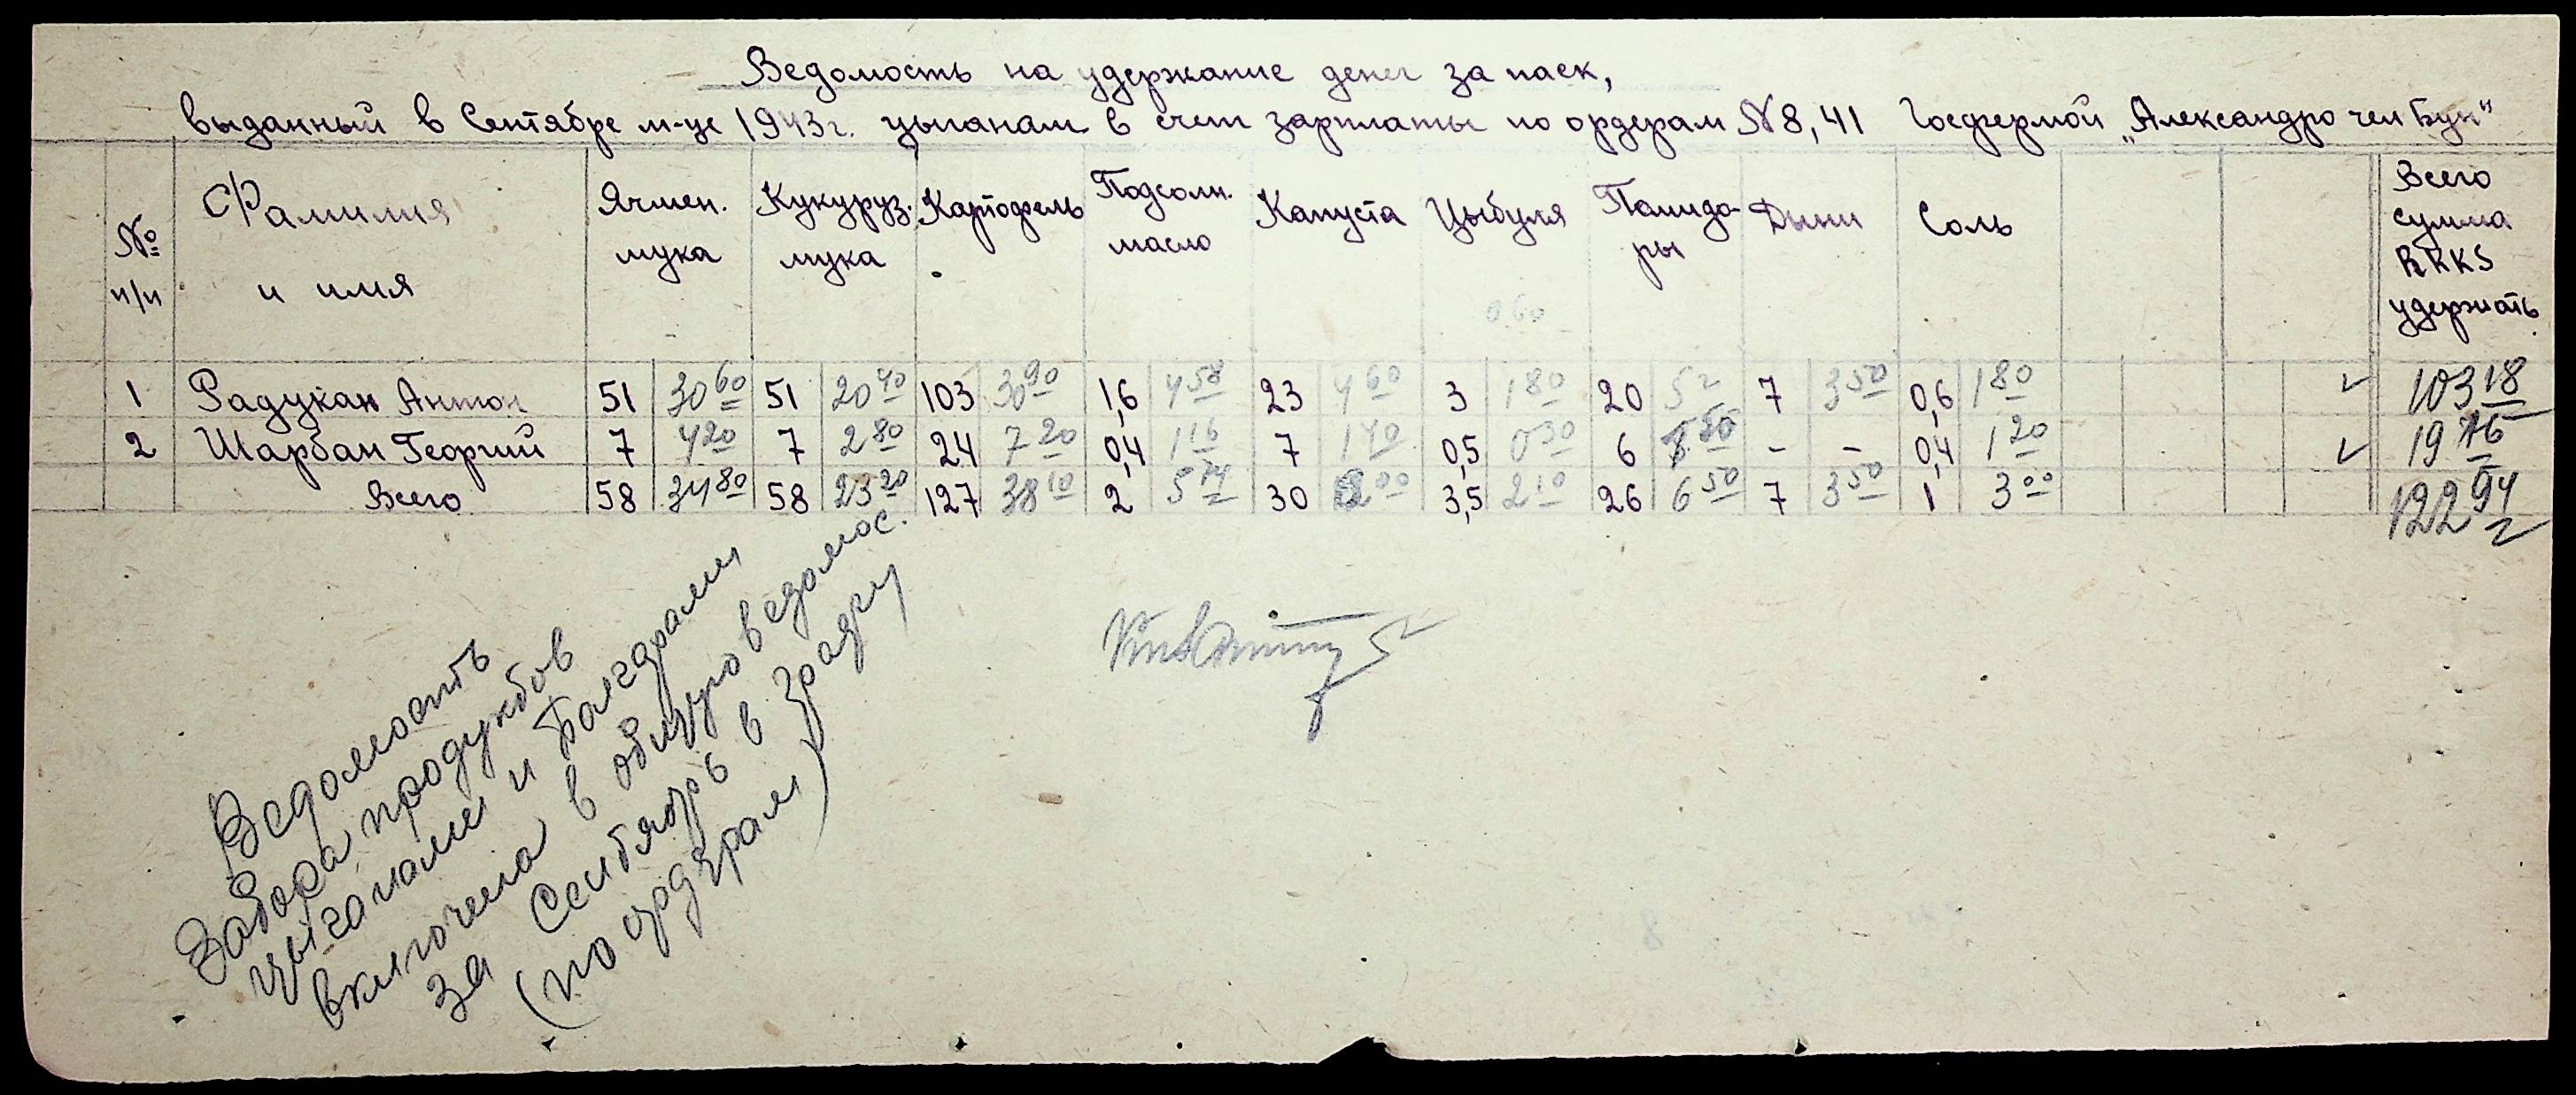 Ведомость на удержание денег за паек,
выданный в Сентябре м-це 1943г. цыганам в счет зарплаты по ордерам №8,41 Госфермой „Александро чел Бун"
№ п/п Фамилия и имя Ячмен. мука Кукуруз. мука Картофель Подсолн. масло Капуста Цыбуля Помидоры Дыни Соль Всего сумма RKKS удержать
0.60
1 Радукан Антон 51 30 60 51 20 40 103 30 90 1,6 4 58 23 4 60 3 1 80 20 5 - 7 3 50 0,6 1 80 103 18
2 Шарбан Георгий 7 4 20 7 2 80 24 7 20 0,4 1 16 7 1 40 0,5 0 30 6 1 50 - - 0,4 1 20 19 76
Всего 58 34 80 58 23 20 127 38 10 2 5 74 30 6 00 3,5 2 10 26 6 50 7 3 50 1 3 00 122 94
Ведомость
забора продуктов
цыганами и
включена в общую ведомос.
за Сентябрь в
(по ордерам)